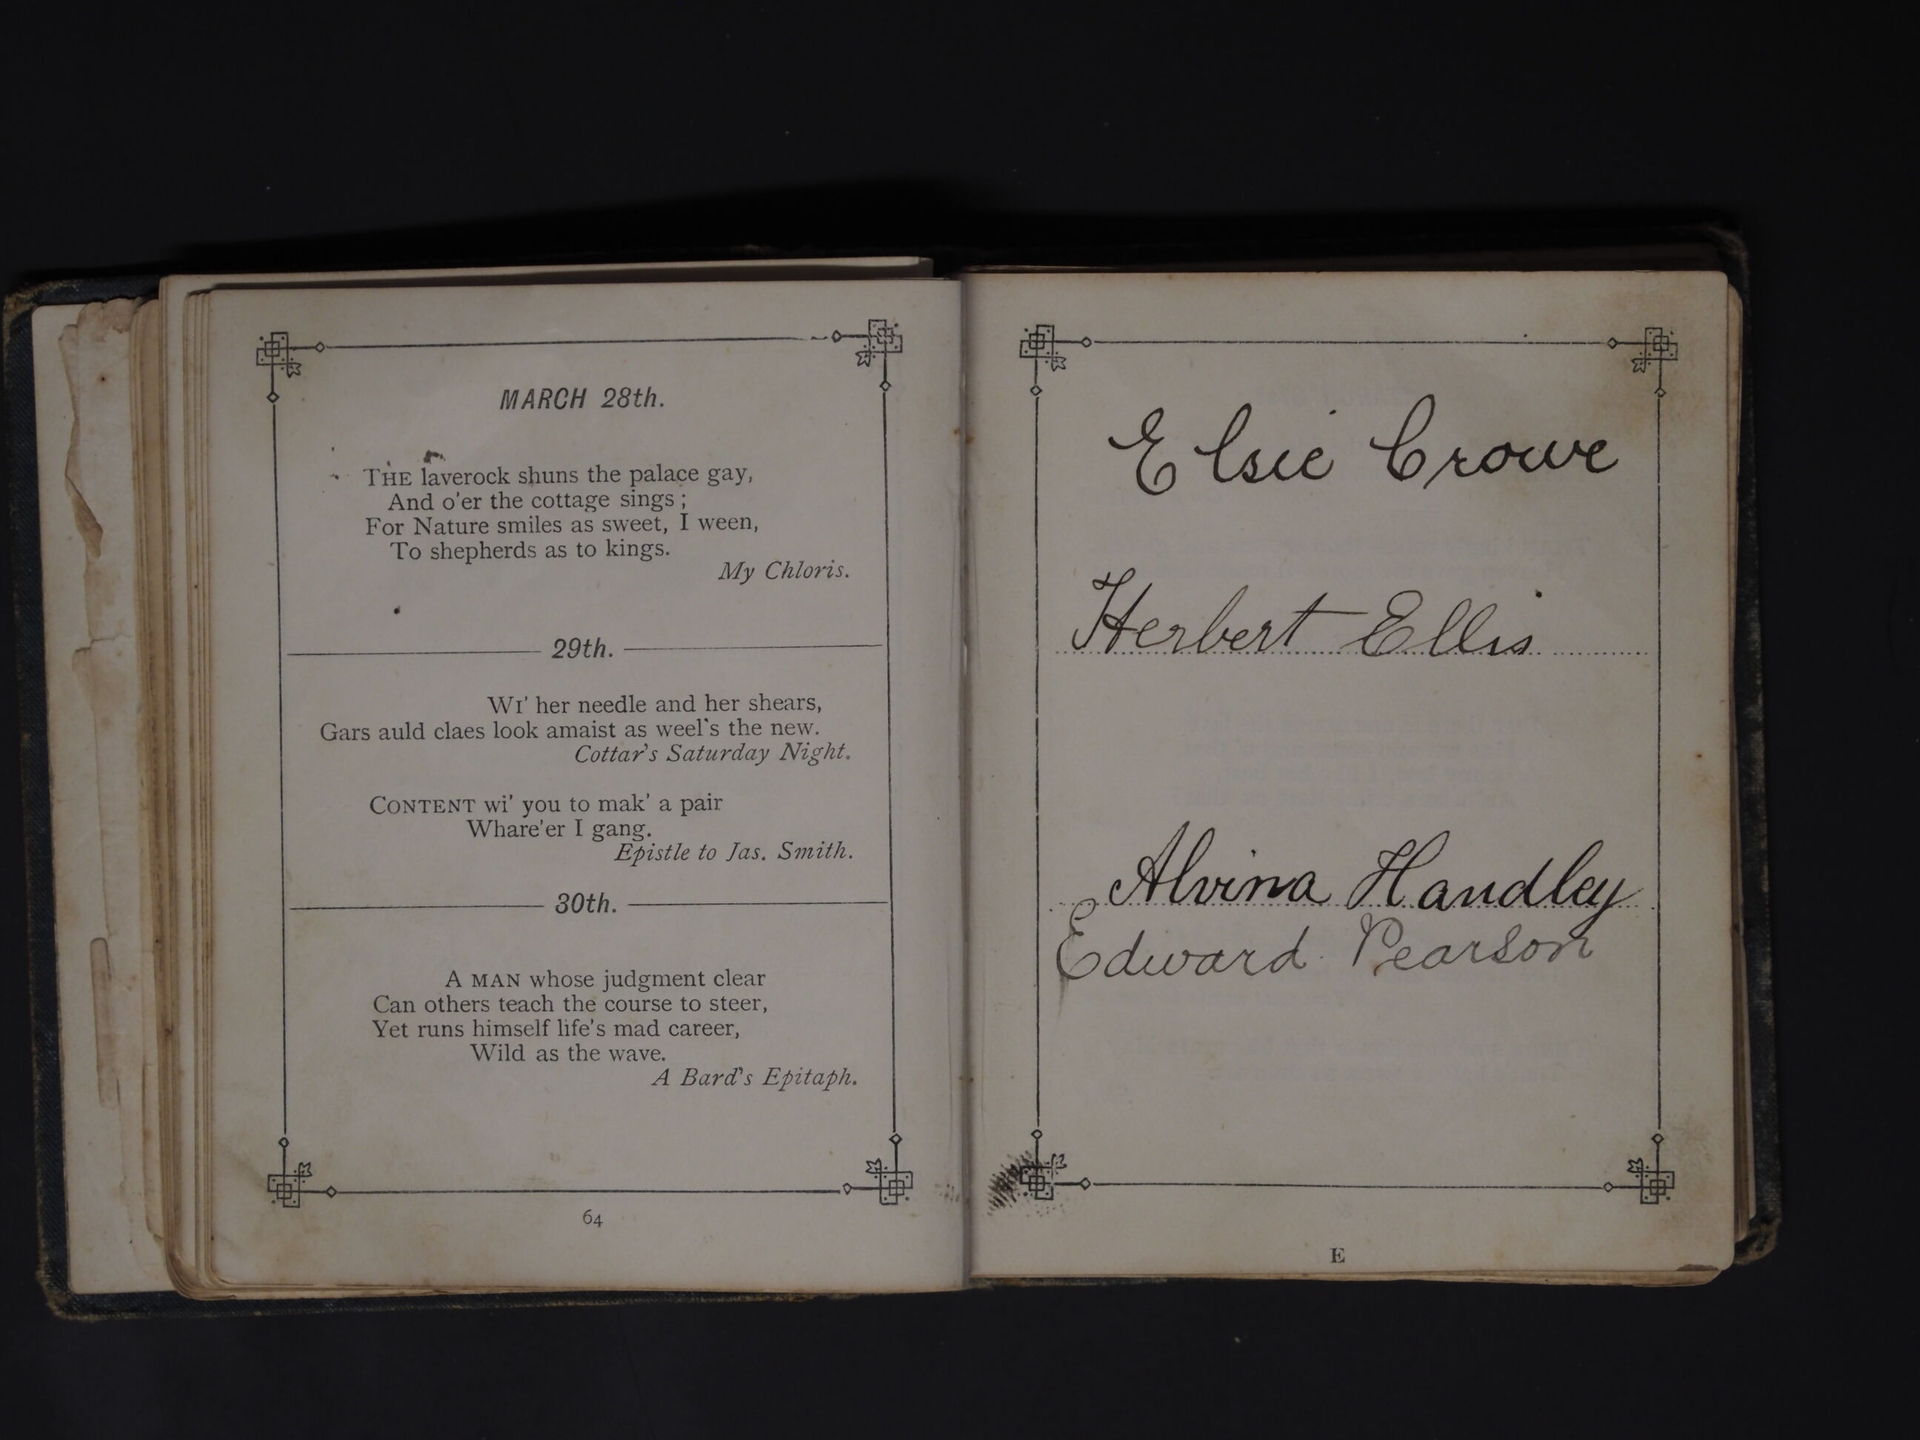 MARCH 28th.
THE laverock shuns the palace gay,
And o'er the cottage sings ;
For Nature smiles as sweet, I ween,
To shepherds as to kings.
My Chloris.
29th.
WI' her needle and her shears,
Gars auld claes look amaist as weel's the new.
Cottar's Saturday Night.
CONTENT wi' you to mak' a pair
Whare'er I gang.
Epistle to Jas. Smith.
30th.
A MAN whose judgment clear
Can others teach the course to steer,
Yet runs himself life's mad career,
Wild as the wave.
A Bard's Epitaph.
64
Elsie Crowe
Herbert Ellis
Alvina Handley
Edward Pearson
E